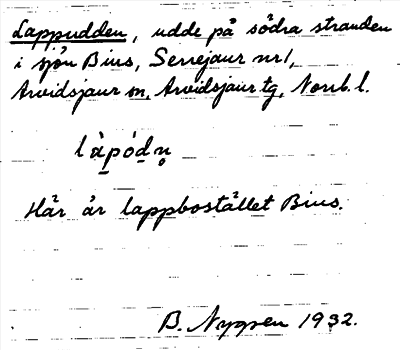 Lappudden, udde på södra stranden
i sjön Bius, Serrejaur nr 1,
Arvidsjaur sn, Arvidsjaur tg, Norrb. l.
làpódn̥
Här är lappbostället Bius.
B. Nygren 1932.